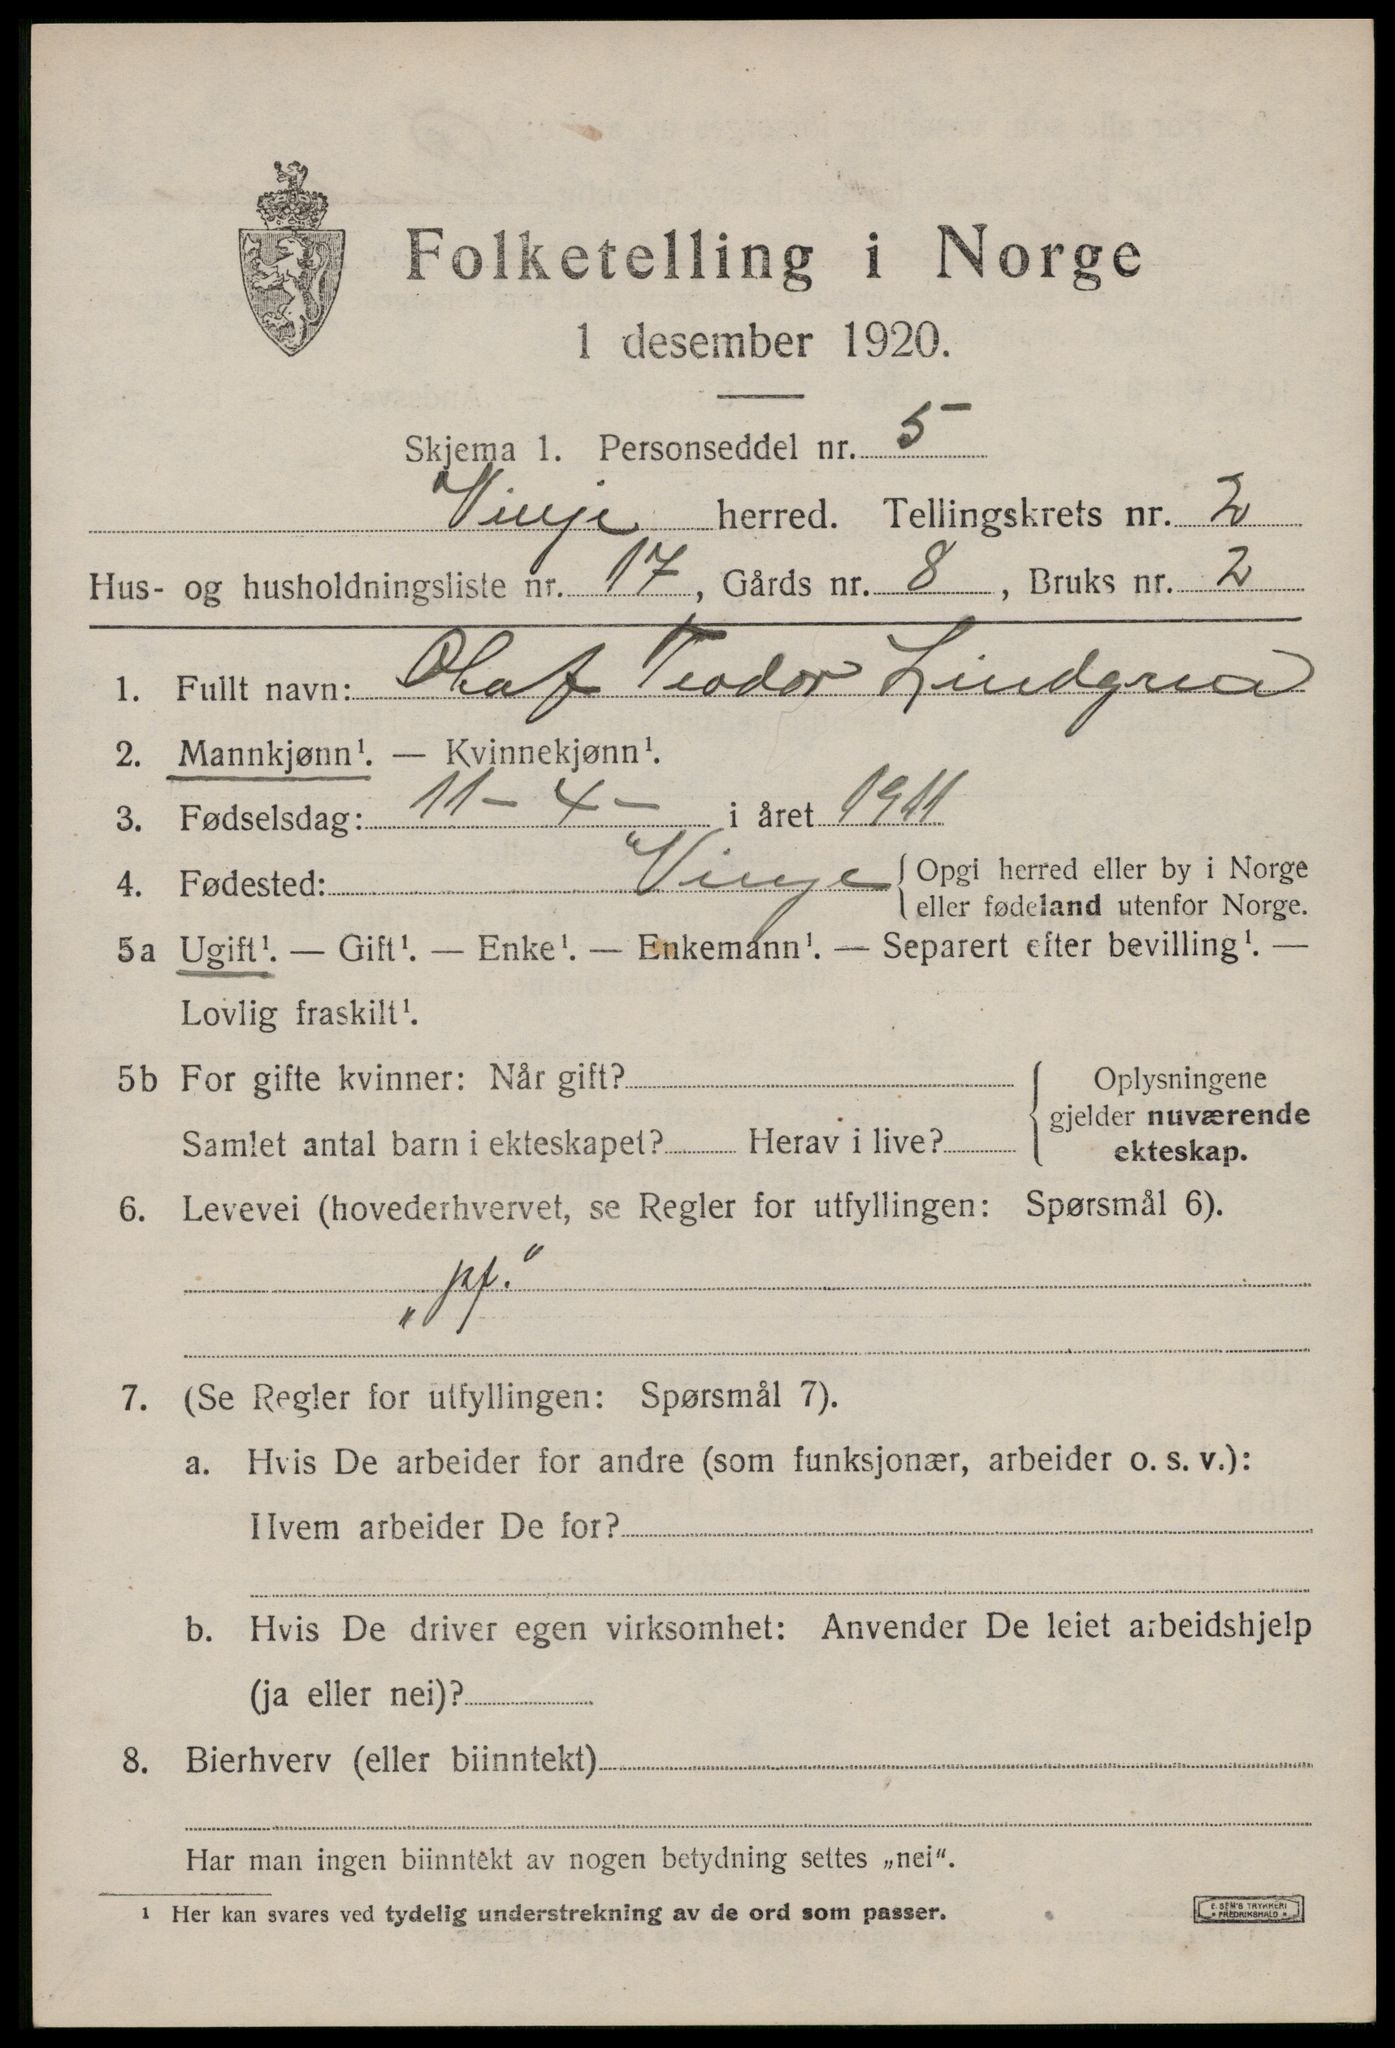 Folketelling i Norge
1 desember 1920.
Skjema 1. Personseddel nr. 5
Vinje herred. Tellingskrets nr. 2
Hus- og husholdningsliste nr. 17, Gårds nr. 8, Bruks nr. 2
1. Fullt navn: Olaf Teodor
2. Mannkjønn¹. — Kvinnekjønn¹.
3. Fødselsdag: 11 - 4 - i året 1911
4. Fødested: Vinje { Opgi herred eller by i Norge
eller fødeland utenfor Norge.
5a Ugift¹. — Gift¹. — Enke¹. — Enkemann¹. — Separert efter bevilling¹. —
Lovlig fraskilt¹.
5b For gifte kvinner: Når gift? { Oplysningene
gjelder nuværende
Samlet antal barn i ekteskapet? Herav i live? ekteskap.
6. Levevei (hovederhvervet, se Regler for utfyllingen: Spørsmål 6).
„pf.“
7. (Se Regler for utfyllingen: Spørsmål 7).
a. Hvis De arbeider for andre (som funksjonær, arbeider o. s. v.):
Hvem arbeider De for?
b. Hvis De driver egen virksomhet: Anvender De leiet arbeidshjelp
(ja eller nei)?
8. Bierhverv (eller biinntekt)
Har man ingen biinntekt av nogen betydning settes „nei“.
¹ Her kan svares ved tydelig understrekning av de ord som passer.
E. SEM'S TRYKKERI
FREDRIKSHALD